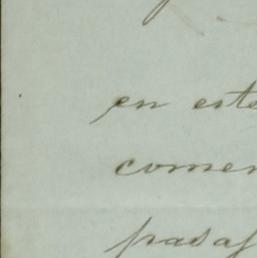 en est
comen
pasaj